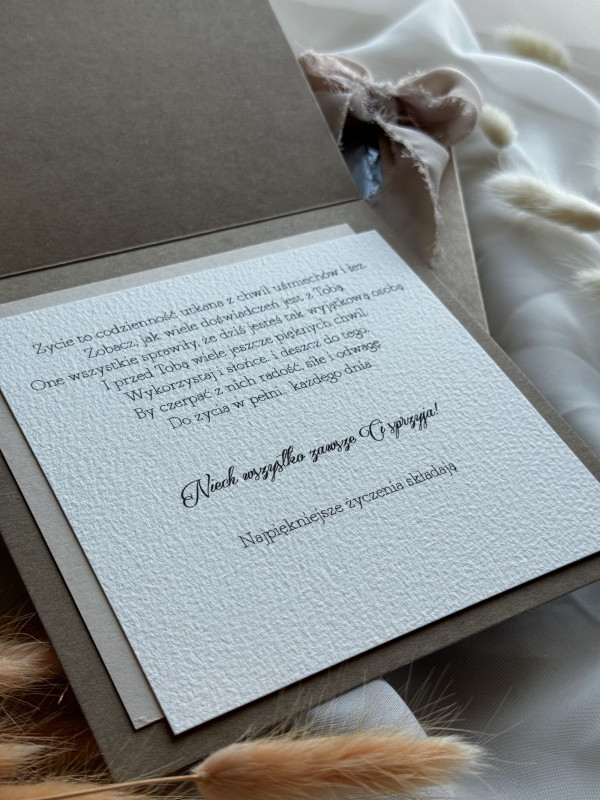 Życie to codzienność utkana z chwil uśmiechów i łez
Zobacz, jak wiele doświadczeń jest z Tobą
One wszystkie sprawiły, że dziś jesteś tak wyjątkową osobą
I przed Tobą wiele jeszcze pięknych chwil
Wykorzystaj i słońce, i deszcz do tego,
By czerpać z nich radość, siłę i odwagę
Do życia w pełni, każdego dnia.
Niech wszystko zawsze Ci sprzyja!
Najpiękniejsze życzenia składają